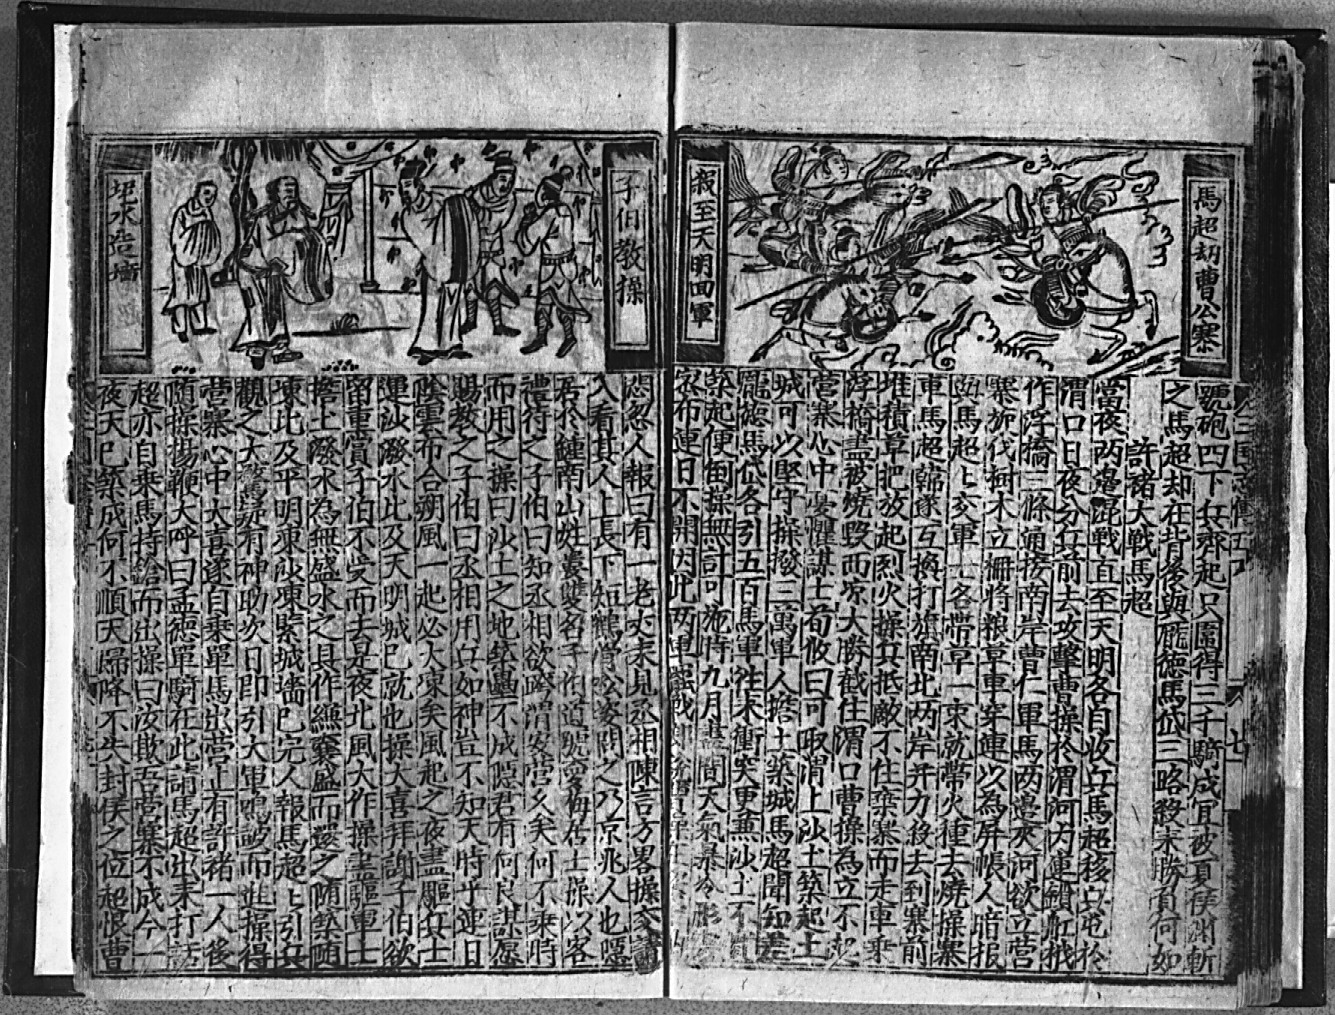 馬超刼曹公寨
殺至天明回軍
號砲四下兵齊起只圍得三千騎成宜被夏侯渊斬
之馬超却在背後與龐德馬岱三路殺来勝負何如
許褚大戰馬超
當夜两邊混戰直至天明各自收兵馬超移兵屯於
渭口日夜分兵前去攻擊曹操於渭河内連鎖舡栰
作浮橋三條通接南岸曹仁軍馬两邊夾河欲立营
寨斫伐树木立栅將粮草車穿連以為屏帳人暗报
與馬超超交軍士各帶草一束就帶火種去燒操寨
車馬超韓遂互換打旗南北两岸并力殺去到寨前
堆積草把放起烈火操兵抵敵不住棄寨而走車乗
浮橋盡被燒毀而凉大勝截住渭口曹操為立不起
营寨心中憂懼謀士荀攸曰可取渭上沙土築起土
城可以堅守操撥三萬軍人擔土築城馬超聞知差
龐德馬岱各引五百馬軍徃来衝突更兼沙土不
築起便倒操無計可施時九月盡間天氣暴冷彤
雲布連日不開因此两軍罷戰
子伯教操
埿水造墻
忽人報曰有一老丈来見丞相陳言方畧操交請
入看其人上長下短鶴骨松姿問之乃京兆人也隠
居於鍾南山姓婁雙名子伯道號夢梅居士操以客
禮待之子伯曰知丞相欲跨渭安营久矣何不乗時
而用之操曰沙土之地築壘不成隠君有何良謀愿
賜教之子伯曰丞相用兵如神豈不知天時乎連日
陰雲布合朔風一起必大凍矣風起之夜盡驅兵士
運沙潑水比及天明城已就也操大喜拜謝子伯欲
留重賞子伯不受而去是夜北風大作操盡驅軍士
擔土潑水為無盛水之具作縑囊盛而澆之随築随
凍比及平明東沙凍緊城墻已完人報馬超超引兵
觀之大驚疑有神助次日即引大軍鳴皷而進操得
营寨心中大喜遂自乗單馬出营止有許褚一人後
随操揚鞭大呼曰孟德單騎在此請馬超出来打話
超亦自乗馬持鎗而出操曰汝欺吾营寨不成今一
夜天已築成何不順天歸降不失封侯之位超恨曹